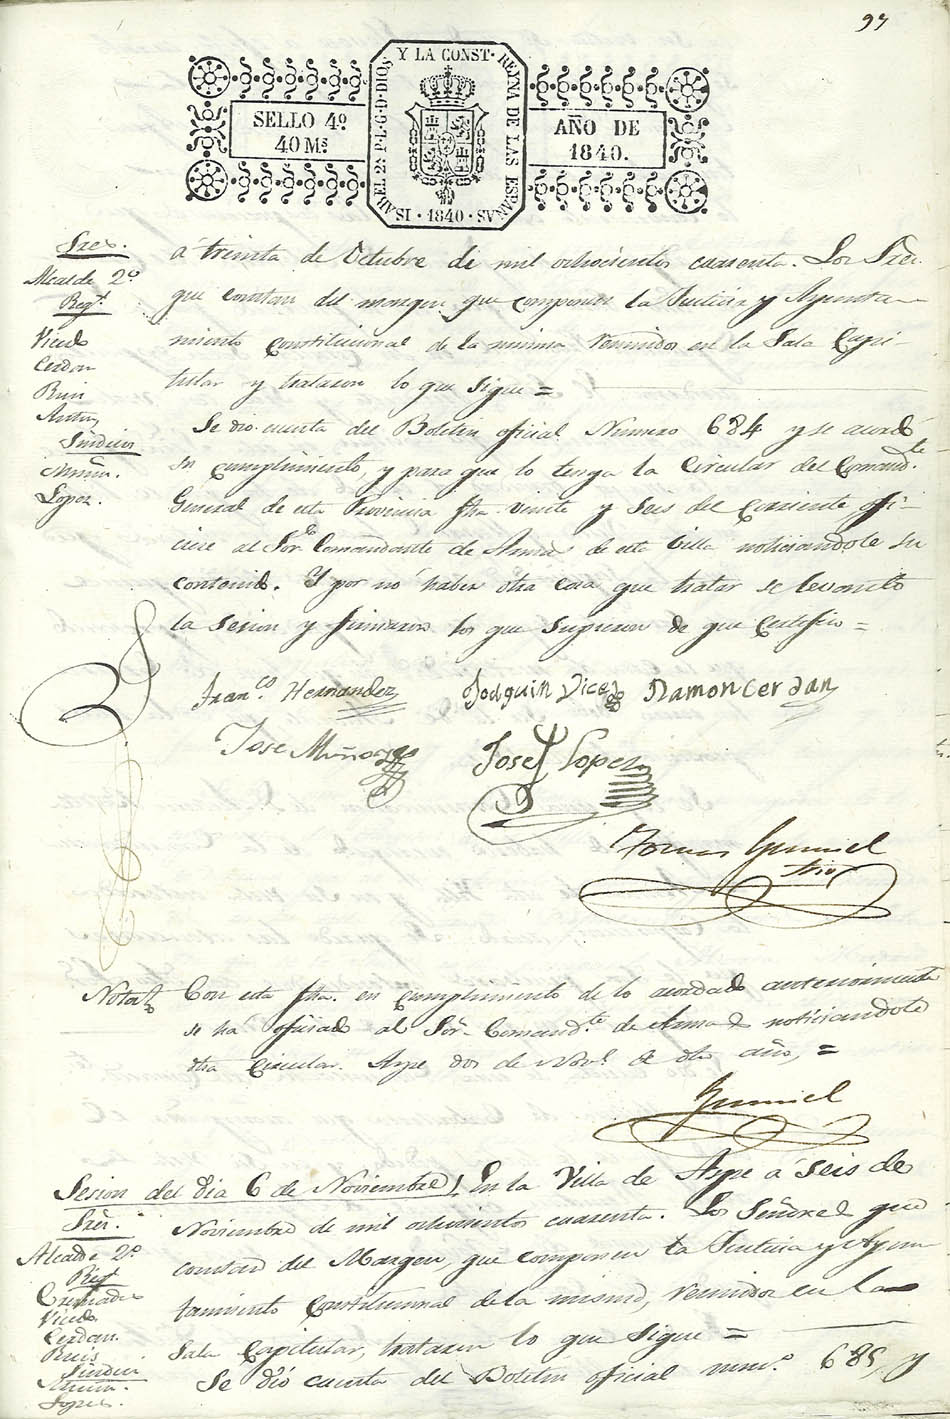 97
SELLO 4º
40 Ms
ISABEL 2ª P. L. G. D. DIOS Y LA CONST. REYNA DE LAS ESPAÑAS
· 1840 ·
AÑO DE
1840.
Sres.
Alcalde 2º
Regs.
Vicedo
Cerdan
Ruiz
Anton
Sindicos
Muñoz.
Lopez.
á treinta de Octubre de mil ochocientos cuarenta. Los Sres.
que constan del margen que componen la Justicia y Ayunta-
miento constitucional de la misma reunidos en la Sala Capi-
tular y trataron lo que sigue =
Se dio cuenta del Boletin oficial Numero 684 y se acordó
su cumplimiento, y para que lo tenga la Circular del Comandte
General de esta Provincia fha. veinte y seis del corriente, ofi-
ciese al Sor. Comandante de Armas de esta Villa noticiandole su
contenido. Y por no haber otra cosa que tratar se levantó
la sesion y firmaron los que supieron de que certifico =
Franco Hernandez
Joaquin Vicedo
Ramon Cerdan
Jose Muñoz
Josef Lopez
Tomas Gumiel
Srio
Nota
Con esta fha. en cumplimiento de lo acordado anteriormente
se há oficiado al Sor. Comandte de Armas noticiandole
dha Circular. Aspe dos de Nove. de dho año, =
Gumiel
Sesion del dia 6 de Noviembre
En la Villa de Aspe á seis de
Sres.
Alcalde 2º
Regs
Cremades
Vicedo
Cerdan.
Ruiz
Sindicos
Muñoz.
Lopez.
Noviembre de mil ochocientos cuarenta. Los Señores que
constan del Margen, que componen la Justicia y Ayun
tamiento Constitucional de la misma, reunidos en la
Sala Capitular, trataron lo que sigue =
Se dió cuenta del Boletin oficial num.º 685, y